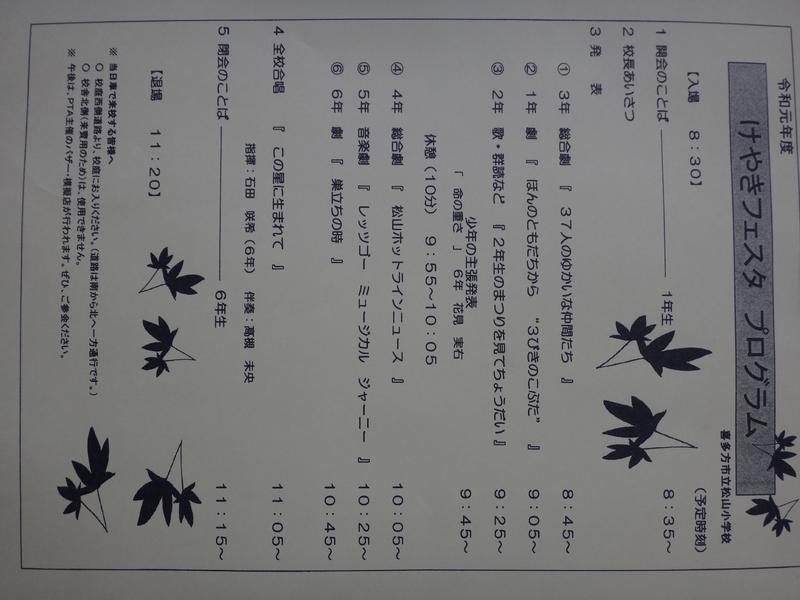 令和元年度
けやきフェスタ プログラム
喜多方市立松山小学校
【入場 8:30】 (予定時刻)
1 開会のことば ――――― 1年生 8:35~
2 校長あいさつ
3 発 表
① 3年 総合劇 『 37人のゆかいな仲間たち 』 8:45~
② 1年 劇 『 ほんのともだちから “3びきのこぶた” 』 9:05~
③ 2年 歌・群読など 『 2年生のまつりを見てちょうだい 』 9:25~
少年の主張発表 9:45~
「 命の重さ 」 6年 花見 実右
休憩(10分) 9:55~10:05
④ 4年 総合劇 『 松山ホットラインニュース 』 10:05~
⑤ 5年 音楽劇 『 レッツゴー ミュージカル ジャーニー 』 10:25~
⑥ 6年 劇 『 巣立ちの時 』 10:45~
4 全校合唱 『 この星に生まれて 』 11:05~
指揮:石田 咲希(6年) 伴奏:髙槻 未央
5 閉会のことば ――――― 6年生 11:15~
【退場 11:20】
※ 当日車で来校する皆様へ
○ 校庭西側道路より、校庭にお入りください。(道路は南から北へ一方通行です。)
○ 校舎北側(来賓用のため)は、使用できません。
※ 午後は、PTA主催のバザー・模擬店が行われます。ぜひ、ご参会ください。